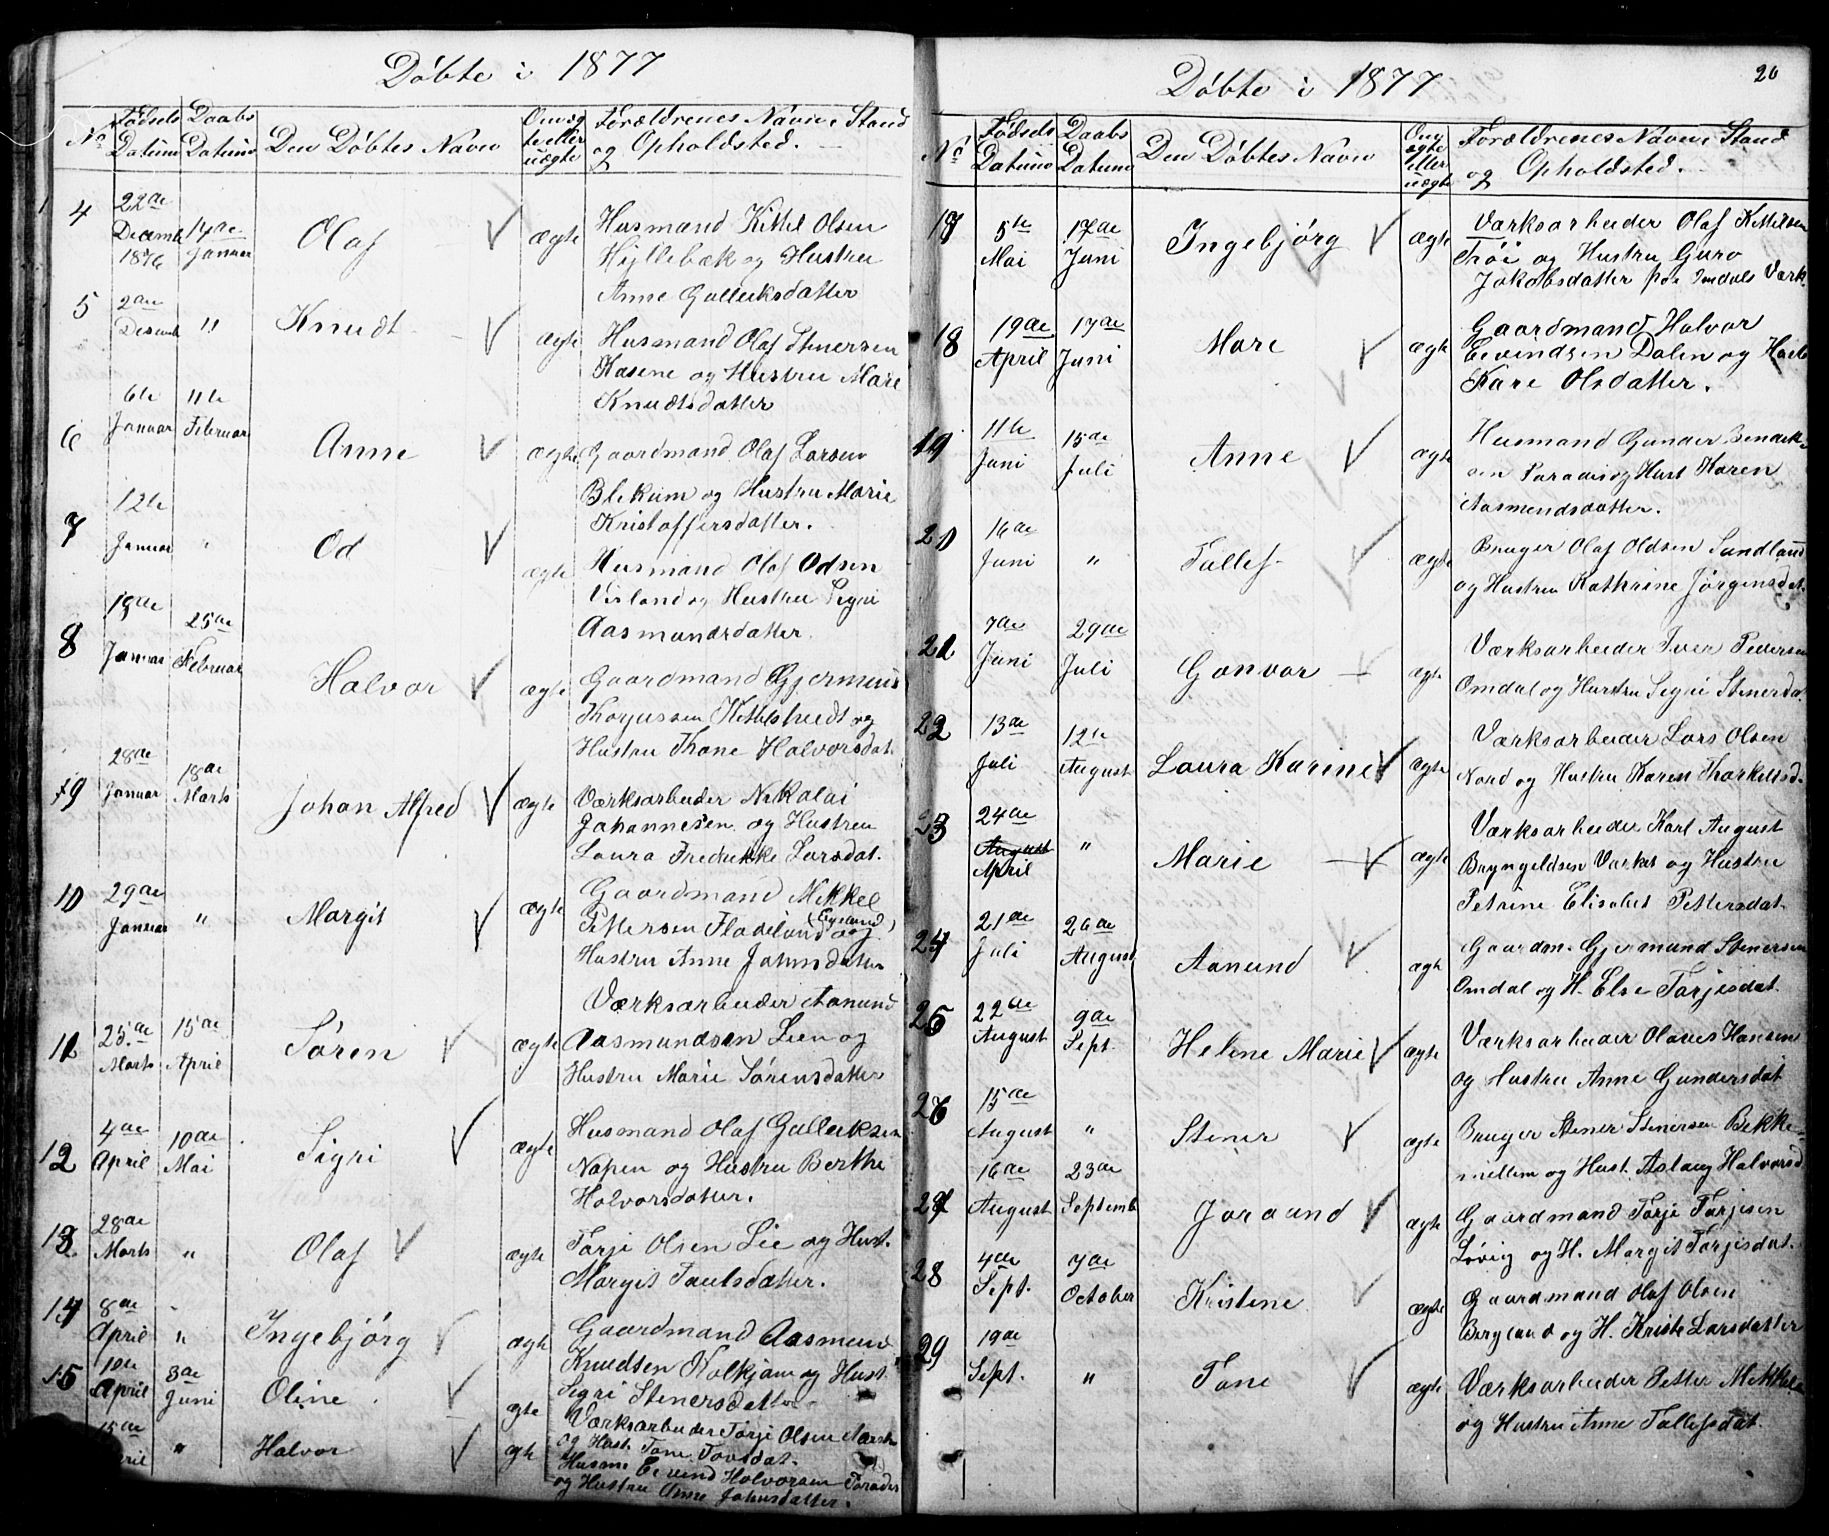 Døbte i 1877
No
Fødsels Datum
Daabs Datum
Den Døbtes Navn
Om ægte eller uægte
Forældrenes Navn, Stand og Opholdsted.
4
22de Decemb 1876
14de Januar
Olaf
ægte
Husmand Kittil Olsen
Hyllebæk og Hustru
Anne Gulleiksdatter
5
2den Desemb
"
Knudt
ægte
Husmand Olaf Stenersen
Kasene og Hustru Mare
Knudtsdatter
6
6te Januar
11te Februar
Anne
ægte
Gaardmand Olaf Larsen
Blekum og Hustru Marie
Kristoffersdatter.
7
12te Januar
"
Od
ægte
Husmand Olaf Odsen
Verland og Hustru Sigri
Aasmundsdatter.
8
19de Januar
25de Februar
Halvor
ægte
Gaardmand Gjermund
Thorjussen Kittelsrudt og
Hustru Thone Halvorsdat.
9
28de Januar
18de Marts
Johan Alfred
ægte
Værksarbeider Nikolai
Johannesen og Hustru
Laura Fredrikke Larsdat.
10
29de Januar
"
Margit
ægte
Gaardmand Mikkel
Pettersen Fladeland (Eysand) og
Hustru Anne Johnsdatter
11
25de Marts
15de April
Søren
ægte
Værksarbeider Aanund
Aasmundsen Lien og
Hustru Marie Sørensdatter
12
4de April
10de Mai
Sigri
ægte
Husmand Olaf Gulleiksen
Napen og Hustru Berthe
Halvorsdatter.
13
28de Marts
"
Olaf
ægte
Tarje Olsen Lie og Hust.
Margit Paulsdatter.
14
8de April
"
Ingebjørg
ægte
Gaardmand Aasmund
Knudsen Kolkjøn og Hust.
Sigri Stenersdatter
15
10de April
3de Juni
Oline
ægte
Værksarbeider Tarje Olsen
og Hust. Tone Tovsdat.
15de April
"
Halvor
ægte
Husm. Eivind Halvorsen
og Hustru Anne Johnsdatter.
Døbte i 1877
20
No
Fødsels Datum
Daabs Datum
Den Døbtes Navn
Om ægte eller uægte
Forældrenes Navn, Stand og Opholdsted.
17
5te Mai
17de Juni
Ingebjørg
ægte
Værksarbeider Olaf Kittilsen
Trøi og Hustru Guro
Jakobsdatter paa Omdals Værk
18
19de April
17de Juni
Mare
ægte
Gaardmand Halvor
Eevindsen Dalen og Hust.
Kare Olsdatter.
19
11te Juni
15de Juli
Anne
ægte
Husmand Gunder Bendik-
sen Paradis og Hust Karen
Aasmundsdatter.
20
16de Juni
"
Tallef
ægte
Bruger Olaf Oldsen Sundland
og Hustru Kathrine Jørgensdat.
21
7de Juni
29de Juli
Gonvor
ægte
Værksarbeider Iver Pedersen
Omdal og Hustru Sigri Stenersda.
22
13de Juli
12te August
Laura Karine
ægte
Værksarbeider Lars Olsen
Nord og Hustru Karen Thorkelsd.
23
24de August April
"
Marie
ægte
Værksarbeider Karl August
Bryngeldsen Værket og Hustru
Petrine Elisabet Pettersdat.
24
21de Juli
26de August
Aanund
ægte
Gaardm. Gjermund Stenersen
Omdal og H. Else Tarjesdat.
25
22de August
9de Sept.
Helene Marie
ægte
Værksarbeider Olaves Hansen
og Hustru Anne Gundersdat
26
15de August
"
Stener
ægte
Bruger Stener Stenersen Bekke-
mellem og Hust. Aslaug Halvorsd.
27
16de August
23de Septemb
Joraand
ægte
Gaardmand Tarje Tarjesen
Løvig og H. Margit Tarjesdat.
28
4de Sept.
7de October
Kristine
ægte
Gaardmand Olaf Olsen
Bergland og H. Kristi Larsdatter
29
19de Sept.
"
Tone
ægte
Værksarbeider Petter Mikkels
og Hustru Anne Tallefsdat.